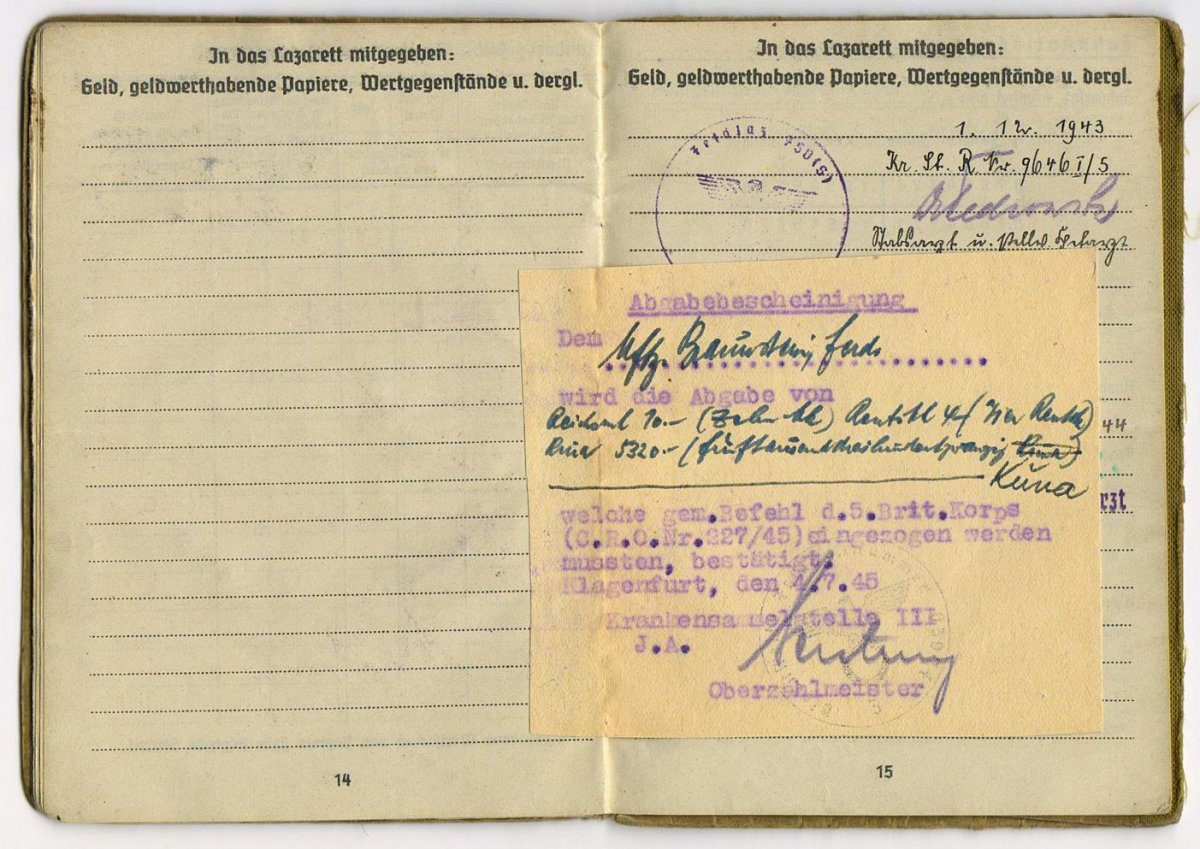 In das Lazarett mitgegeben:
Geld, geldwerthabende Papiere, Wertgegenstände u. dergl.
14
In das Lazarett mitgegeben:
Geld, geldwerthabende Papiere, Wertgegenstände u. dergl.
1. 12. 1943
Feldlaz 750(S)
Kr. St. R Nr. 9646 I/5
Stabsarzt u.
44
rzt
Abgabebescheinigung
Dem Uffz.
wird die Abgabe von
10.- (Zehn
5320.- (
Kuna
welche gem.Befehl d.5.Brit.Korps
(C.R.O.Nr.227/45)eingezogen werden
mussten, bestätigt.
Klagenfurt, den 4.7.45
Krankensammelstelle III
J.A.
Oberzahlmeister
15